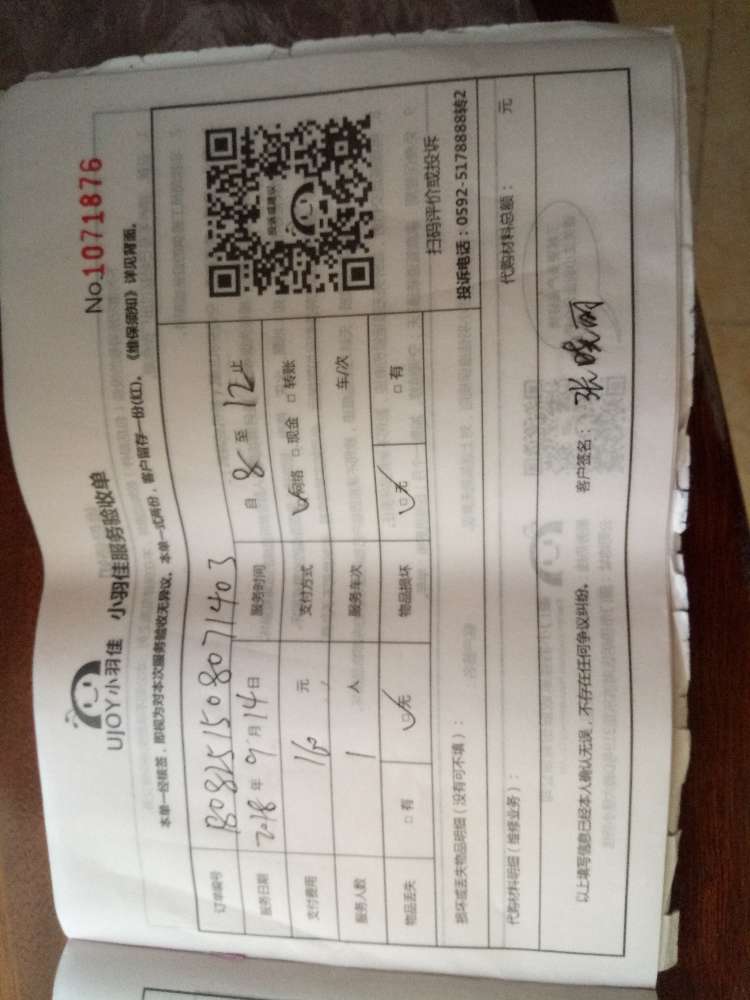 UJOY小羽佳 小羽佳服务验收单
No.1071876
本单一经核签，即视为对本次服务验收无异议。本单一式两份，客户留存一份(红)。《维保须知》详见背面。
订单编号 1808251508071403
服务日期 2018年9月14日 服务时间 自8至12止
支付费用 160元 支付方式 ☑网络 □现金 □转账
服务人数 1人 服务车次 车/次
物品丢失 □有 ☑无 物品损坏 ☑无 □有
投诉或建议
扫码评价或投诉
投诉电话：0592-5178888转2
损坏或丢失物品明细（没有可不填）：
代购材料明细（维修业务）： 代购材料总额： 元
以上填写信息已经本人确认无误，不存在任何争议纠纷。 客户签名：张晓丽